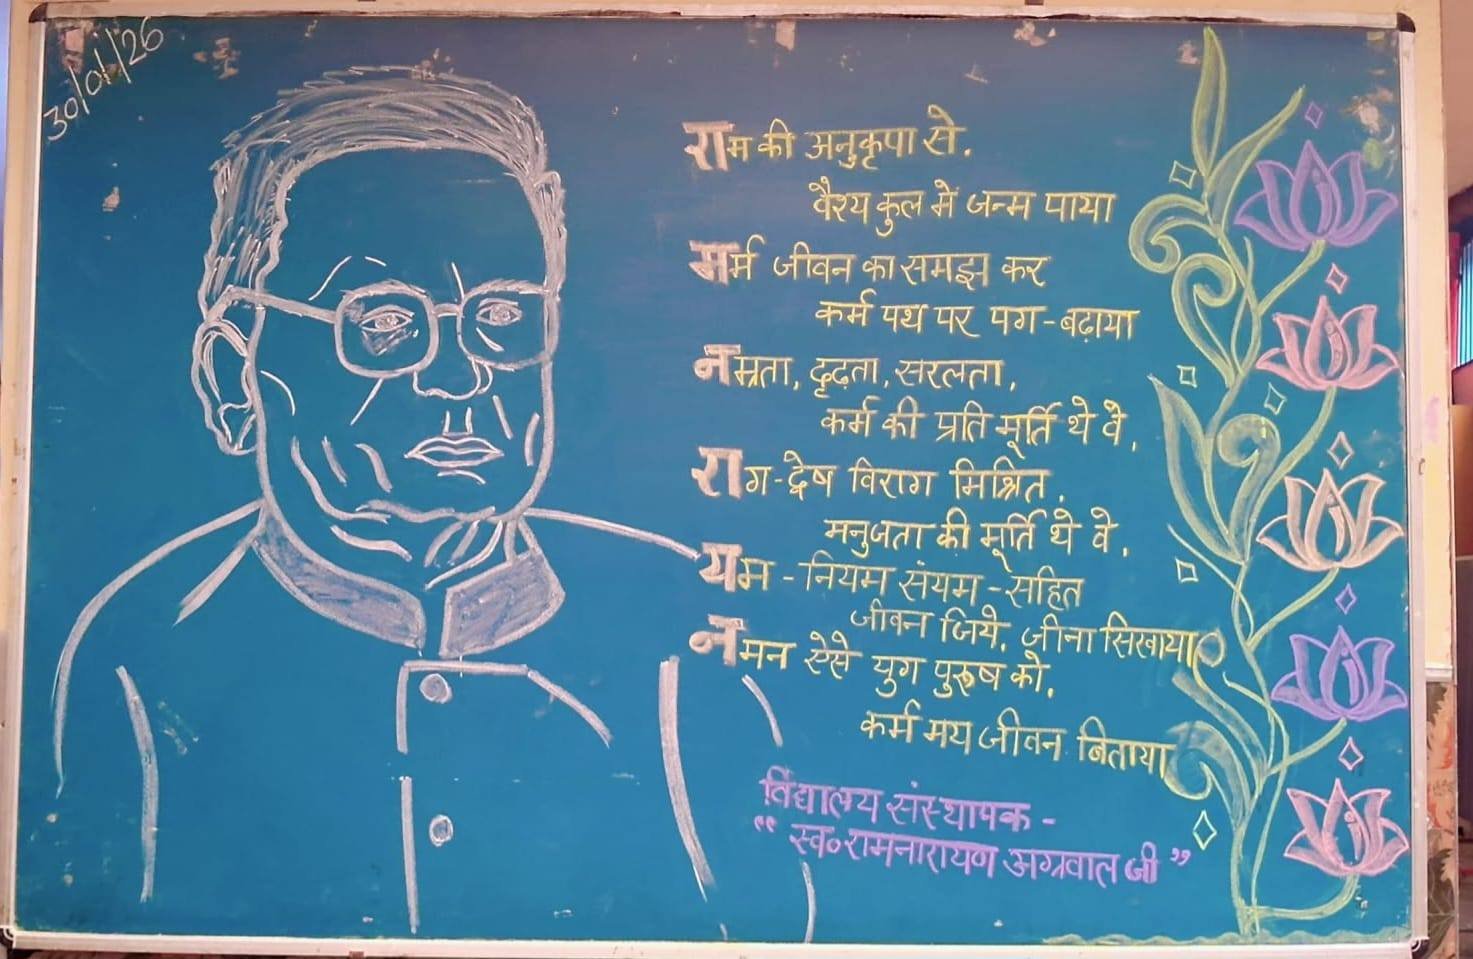 30/01/26
राम की अनुकृपा से.
वैश्य कुल में जन्म पाया
मर्म जीवन का समझ कर
कर्म पथ पर पग-बढ़ाया
नम्रता, दृढ़ता, सरलता,
कर्म की प्रति मूर्ति थे वे,
राग-द्वेष विराग मिश्रित,
मनुजता की मूर्ति थे वे,
यम-नियम संयम-सहित
जीवन जिये, जीना सिखाया
नमन ऐसे युग पुरूष को,
कर्म मय जीवन बिताया
विद्यालय संस्थापक -
"स्व० रामनारायण अग्रवाल जी"